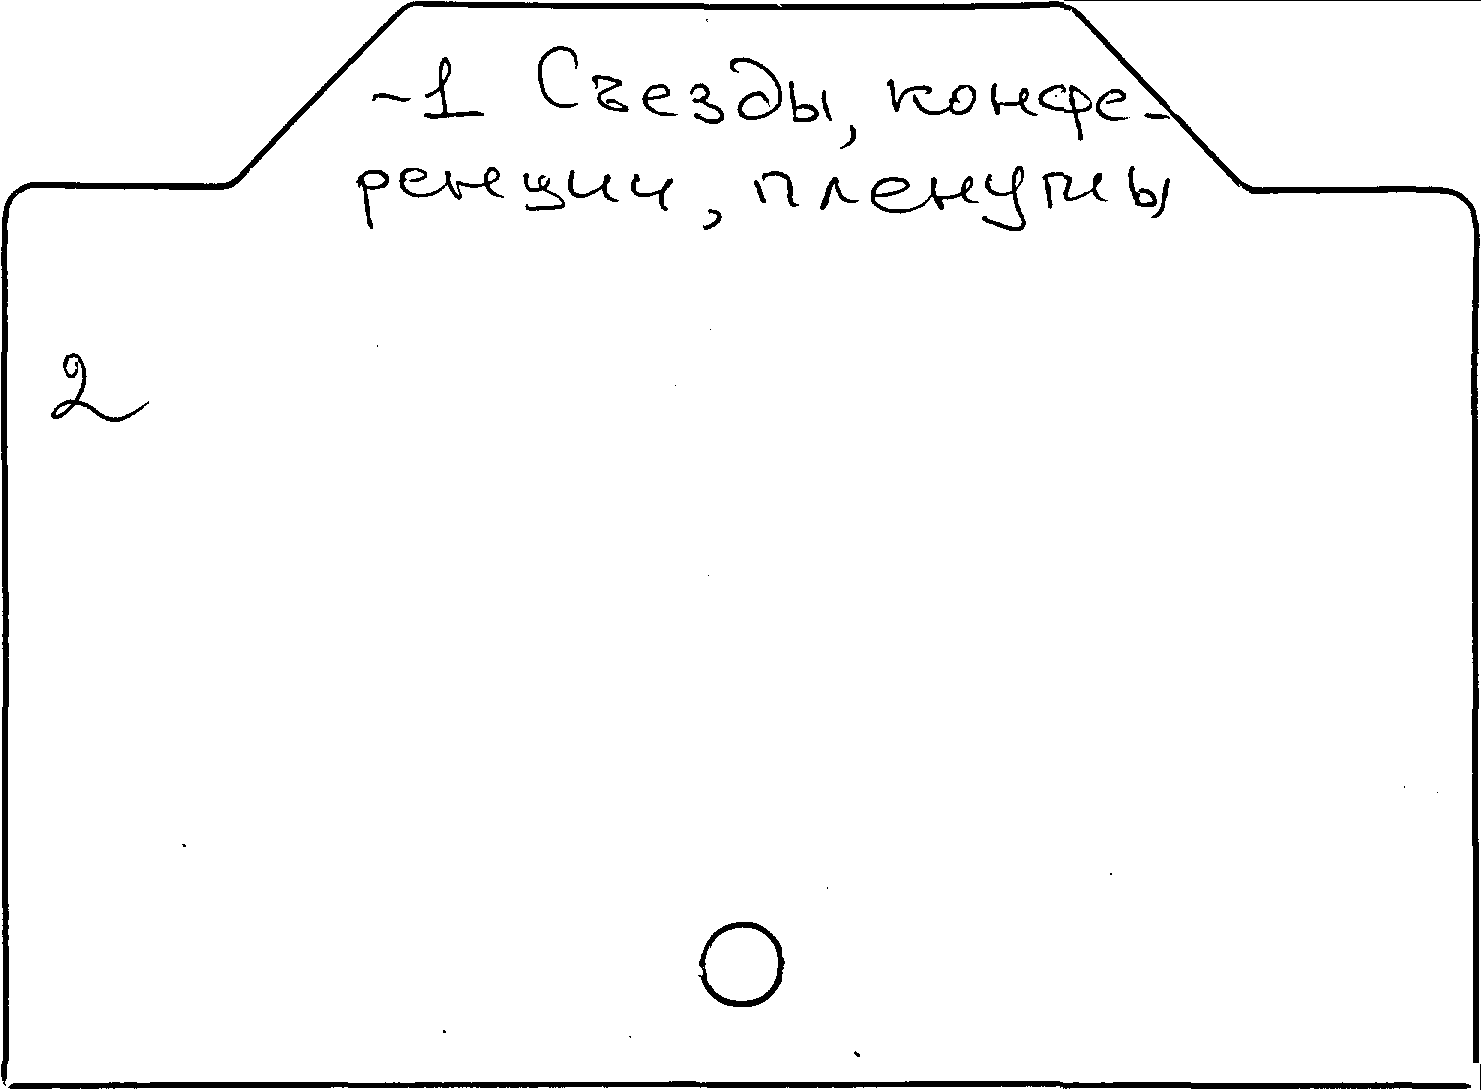 -1 Съезды, конфе-
ренции, пленумы
2